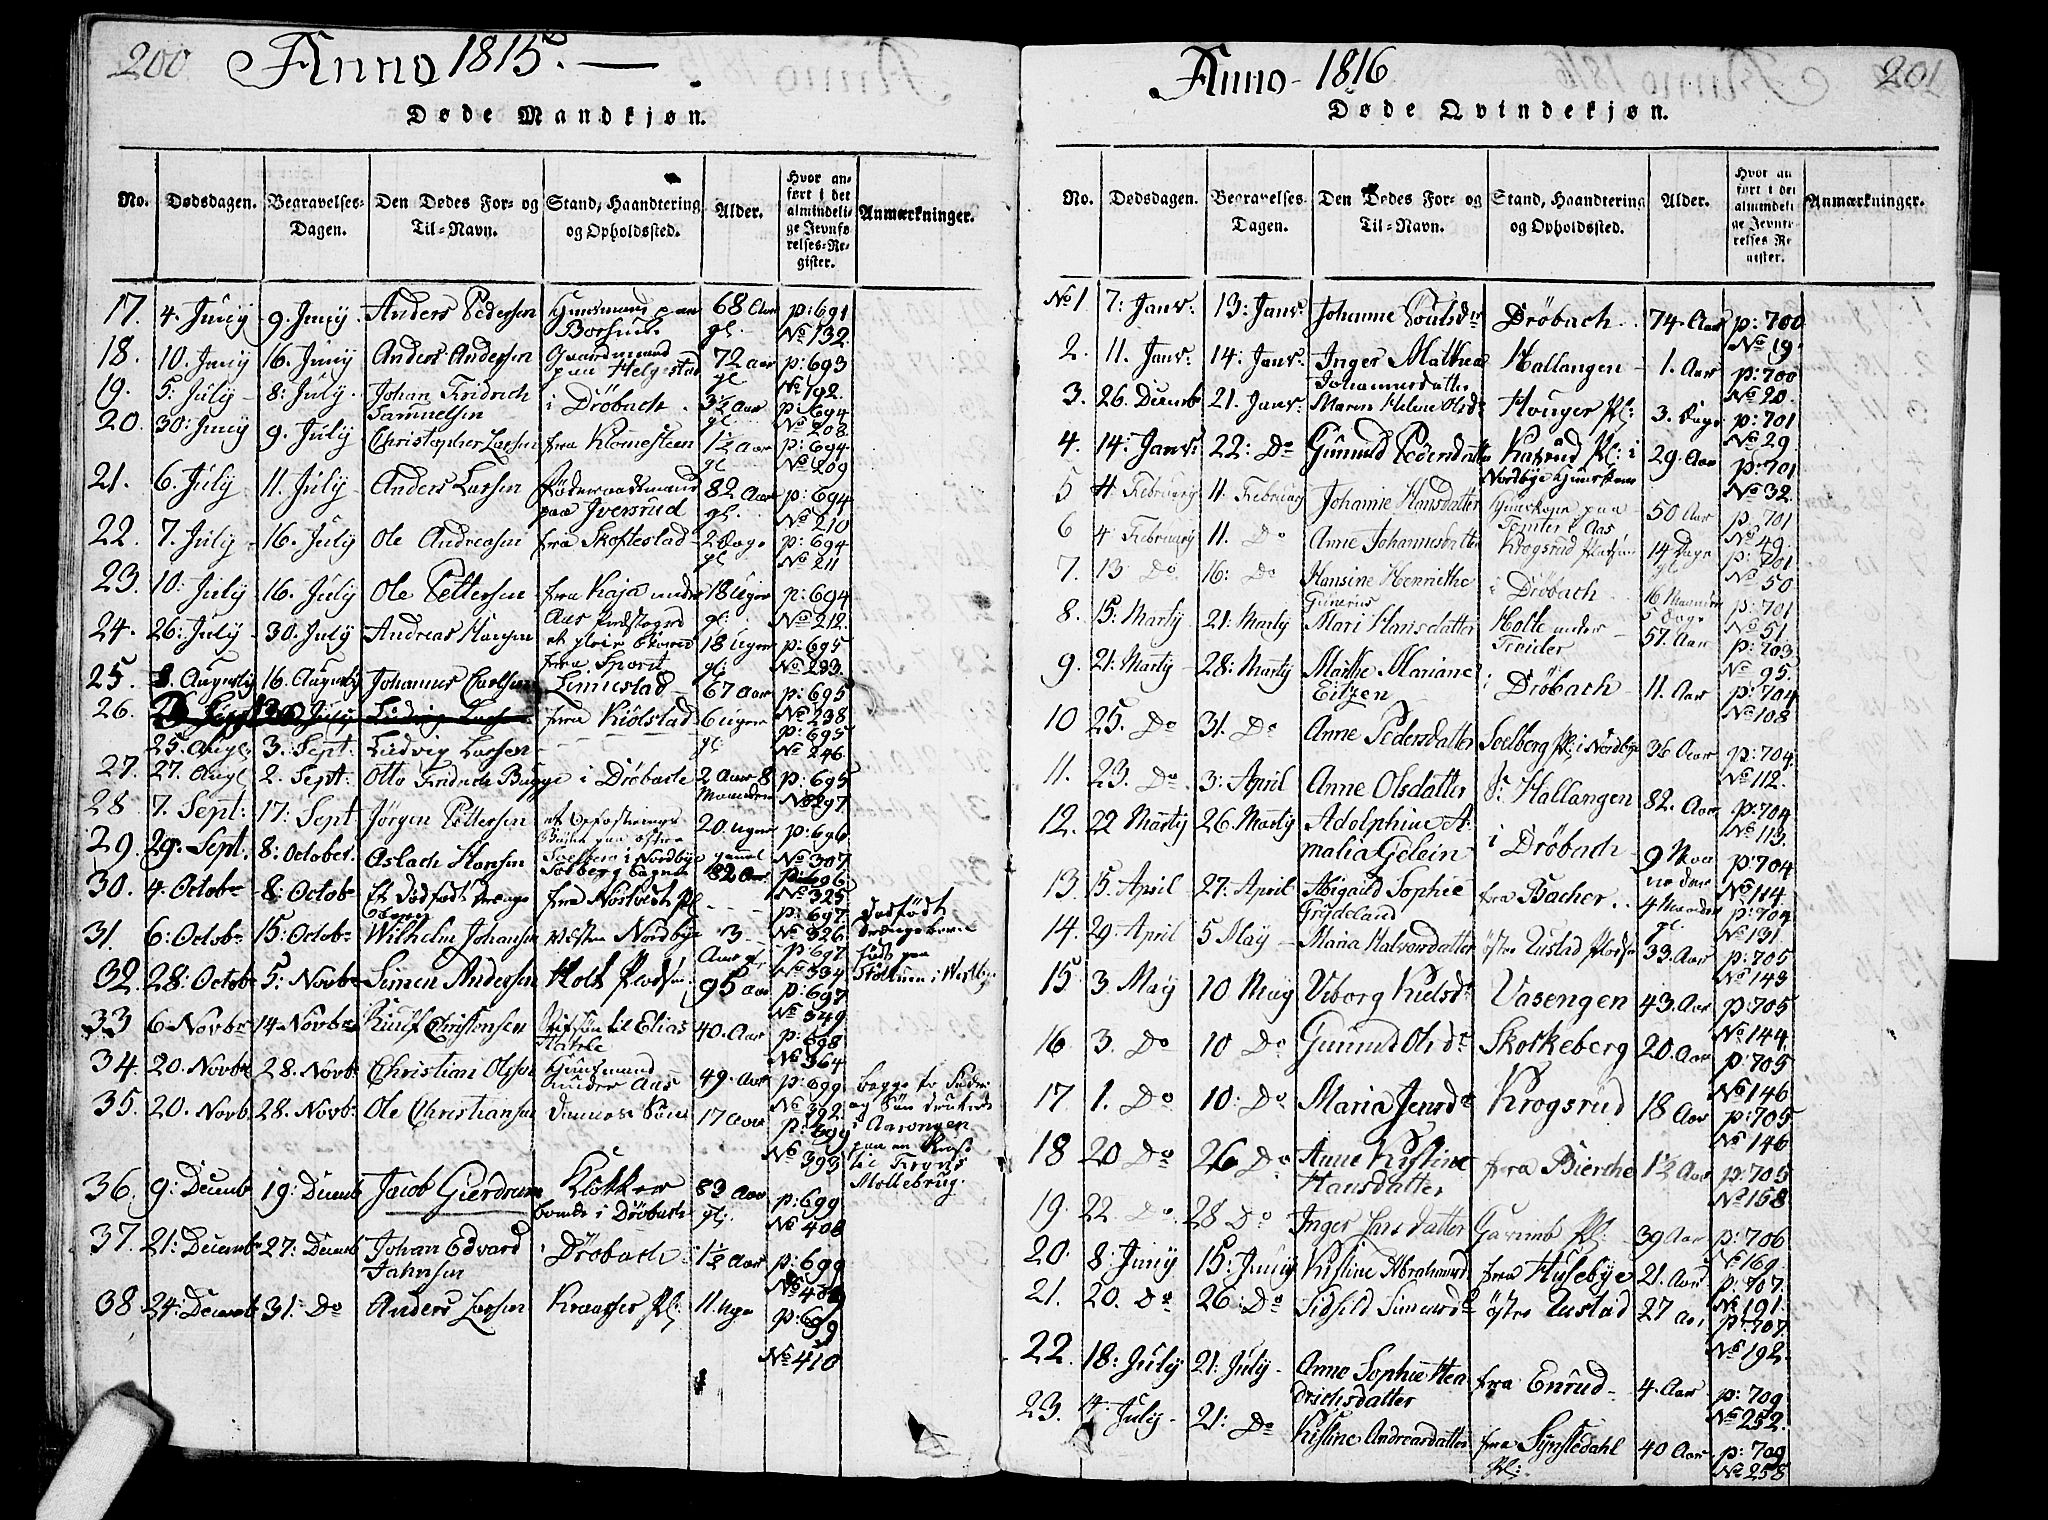 200. Anno 1815. —
Døde Mandkjøn.
No. Dødsdagen. Begravelses-Dagen. Den Dødes For- og Til-Navn. Stand, Haandtering og Opholdssted. Alder. Hvor anført i det almindelige Jevnførelses-Register. Anmærkninger.
17. 4. Juny 9. Juny Anders Pedersen Huusmand paa 68 Aar gl. p: 691 No 132.
18. 10. Juny 16. Juny Anders Andersen Gaardmand paa Helgestad 72 aar gl p: 693 No 192.
19. 5: July 8: July Johan Fridrich Samuelsen i Drøbach 3½ Aar gl. p: 694 No 208
20. 30: Juny 9. July Christopher Larsen fra Klomesteen 1½ Aar gl p: 694 No 209
21. 6. July 11. July Anders Larsen Føderaadsmand paa Iversrud 82 Aar gl. p: 694 No 210
22. 7. July 16. July Ole Andreasen fra Skoftestad 2 Dage gl p: 694 No 211
23. 10. July 16. July Ole Pettersen fra Kaja under Aas Præstegrd 18 Uger gl. p: 694 No 212.
24. 26: July 30. July Andreas Hansen fra Sporit 18 Uger gl: p: 695 No 233.
25. 8. Augusty 16. Augusty Johannes Carlsen Linnestad 67 aar p: 695 No 238
26. 25. Augl: 3. Sept: Ludvig Larsen fra Kiølstad 6 Uger gl: p: 695 No 246.
27. 27. Augl 2. Sept: Otto Fridrich Bugge i Drøbach 2 Aar 8 Maaneder p: 695 No 297.
28 7. Sept: 17: Sept Jørgen Pettersen et Opfostrings Barn paa østre Soelberg i Nordbye 20 uger gammel p: 696 No 307
29. 29. Sept. 8: October. Aslach Hansen Solberg 82 Aar p: 696 No 325
30. 4. Octobr 8: Octobr Et dødfødt Drenge Barn fra Nordvedt Pl p: 697. No 326. Dødfødt Drengebarn født paa i Westby
31. 6: Octobr 15: Octobr Wilhelm Johansen vestre Nordbye 3 Aar gl. p: 697 No 334
32. 28: Octobr 5: Novbr Simen Andersen Holt Pladsen 95 aar p: 697 No 349
33 6. Novbr 14. Novbr Christensen Stifsøn til Elias 40. Aar p: 698 No 364
34. 20. Novbr 28. Novbr Christian Olsen Huusmand under Aas 49. Aar p: 699 No 392. begge to Fader og Søn druknede i Aarongen paa en Reise til Frogns Møllebrug.
35. 20. Novb. 28. Novbr Ole Christiansen dennes Søn 17 aar p: 699 No 393
36. 9: Decemb 19: Decemb Jacob Gierdrum Klokker boende i Drøbach 83 Aar gl: p: 699 No 408
37. 21: Decemb 27: Decemb Johan Edvard Jahnsen i Drøbach 1½ Aar p: 699 No 409
38. 24: Decemb 31: Do Anders Larsen Kraaser Pl: 11. uger p: 699 No 410
Anno 1816 201
Døde Qvindekjøn.
No. Dødsdagen. Begravelses Dagen. Den Dødes For- og Til-Navn. Stand, Haandtering og Opholdssted. Alder. Hvor anført i det almindelige Jevnførelses Register. Anmærkninger.
No 1 7: Janv: 13: Janv: Johanne Poulsdr Drøbach 74. Aar p: 700 No 19.
2. 11. Janv: 14: Janv: Inger Mathea Johannesdatter Hallangen 1. Aar p: 700 No 20.
3. 26. Decemb 21. Janv: Maren Helene Olsdr Houger Pl: 3. Dage p: 701 No 29
4. 14: Janv: 22: Do Gunild Pedersdatter Kaxrud Pl: i Nordbye 29. Aar p: 701 No 32.
5 4. February 11. February Johanne Hansdatter Huuskone paa Tomter i Aas 50 Aar p: 701 No 49.
6 4 February 11. Do Anne Johannesdatter Krogsrud pladsen 14 Dage gl p: 701 No 50
7. 13 Do 16: Do Hansine Henriethe Gunerius i Drøbach 16 Maaneder 5 Dage p: 701 No 51.
8. 15: Marty 21: Marty Mari Hansdatter Holte under Froider 57. Aar p: 703 No 95.
9. 21: Marty 28: Marty Marthe Mariane Eitzen i Drøbach 11. Aar p: 704 No 108
10 25. Do 31. Do Anne Pedersdatter Soelberg Pl: i Nordbye 36 Aar p: 704. No 112.
11. 23. Do 3: April Anne Olsdatter Hallangen 82. Aar p: 704 No 113.
12. 22 Marty 26. Marty Adolphine Amalia Gelein i Drøbach 9 Maaneder p: 704 No 114.
13. 15. April 27: April Abigaild Sophie Grydeland fra Bacher 4 Maaneder gl. p: 704 No 131
14. 29. April 5 May Maria Halvorsdatter østre Rustad Pladsen 33. Aar p: 705 No 143
15 3. May 10. May Viborg Kielsdr Vasengen 43. Aar p: 705 No 144.
16 3. Do 10 Do Gunild Olsdr Skorkeberg 20. Aar p: 705 No 146
17 1. Do 10: Do Maria Jensdr Krogsrud 18 Aar p: 705 No 146
18 20 Do 26 Do Anne Kistine Hansdatter fra Bierche 1½ Aar p: 705 No 168
19. 22. Do 28 Do Inger Larsdatter Pl: 39 Aar p: 706 No 169.
20 8: Juny 15: Juny Kistine Abrahamsd fra Husebye 21. Aar p: 707. No 191.
21. 20. Do 26: Do Sidseld Simensdr østre Rustad 27 Aar p: 707. No 192.
22. 18: July 21: July Anne Sophie Hendrichsdatter fra Enrud 4. Aar p: 709 No 252.
23. 14. July 21: Do Kistine Andreasdatter fra Synstedahl Pl: 40 Aar p: 709 No 258